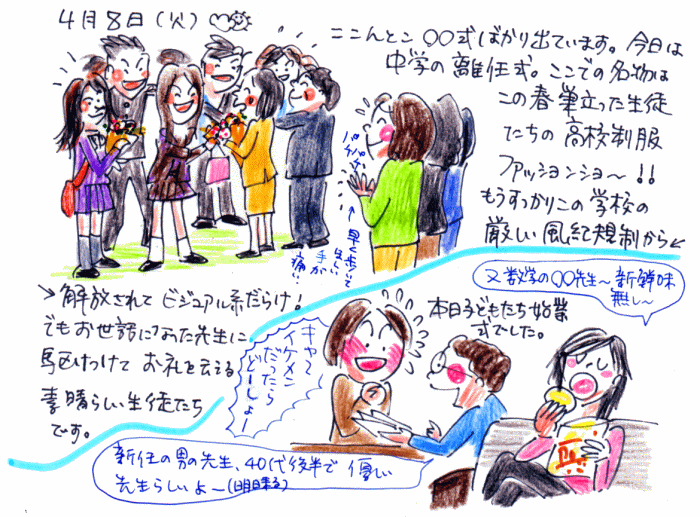 4月8日(火)
ここんとこ〇〇式ばかり出ています。今日は
中学の離任式。ここでの名物は
この春巣立った生徒
たちの高校制服
ファッションショ〜!!
もうすっかりこの学校の
厳しい風紀規制から
パチパチ
早く歩いて
ほしい
手が
痛い…
解放されてビジュアル系だらけ!
でもお世話になった先生に
駆けつけてお礼を云える
素晴らしい生徒たち
です。
又数学の〇〇先生〜新鮮味
無し〜
本日子どもたち始業
式でした。
キャ〜
イケメン
だったら
どーしよー
新任の男の先生、40代後半で優しい
先生らしいよ〜(明日来る)